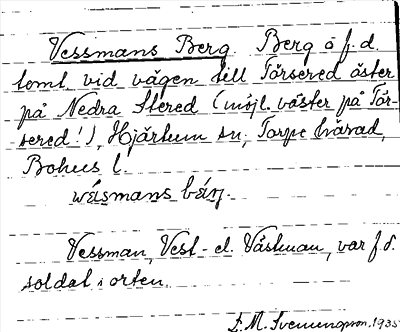 Vessmans Berg. Berg å f.d.
tomt vid vägen till Törsered öster
på Nedra Stered (möjl. väster på Tör-
sered!), Hjärtum sn, Torpe härad,
Bohus l.
Vessman, Vest- el. Västman, var f.d.
soldat i orten.
S. M. Svenungsson, 1935